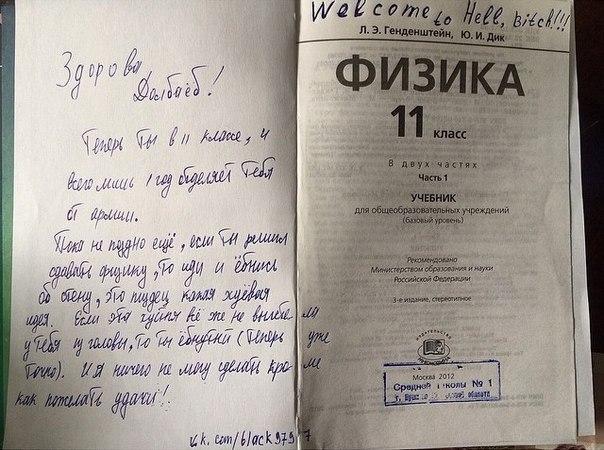 Здорова
Долбаёб!
Теперь ты в 11 классе, и
всего лишь 1 год отделяет тебя
от армии.
Пока не поздно ещё, если ты решил
сдавать физику, то иди и ёбнись
об стену, это пиздец какая хуёвая
идея. Если эта хуйня всё же не вылетела
у тебя из головы, то ты ёбнутый (теперь уже
точно). И я ничего не могу сделать кроме
как пожелать удачи!
vk.com/black9797
Welcome to Hell, Bitch!!!
Л. Э. Генденштейн, Ю. И. Дик
ФИЗИКА
11 класс
В двух частях
Часть 1
УЧЕБНИК
для общеобразовательных учреждений
(базовый уровень)
Рекомендовано
Министерством образования и науки
Российской Федерации
3-е издание, стереотипное
Москва 2012
Средней школы № 1
области